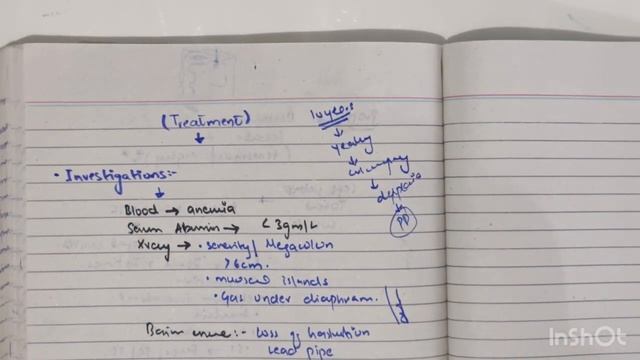 (Treatment)
↓
10 years
↓
yearly
↓
↓
dysplasia
↓
PP
• Investigations:-
↓
Blood → anemia
Serum Albumin → < 3gm/L
Xray → • severity / Megacolon
>6cm.
• mucosal islands
• Gas under diaphram.
Barium enema:- Loss of haustration
Lead pipe
InShot